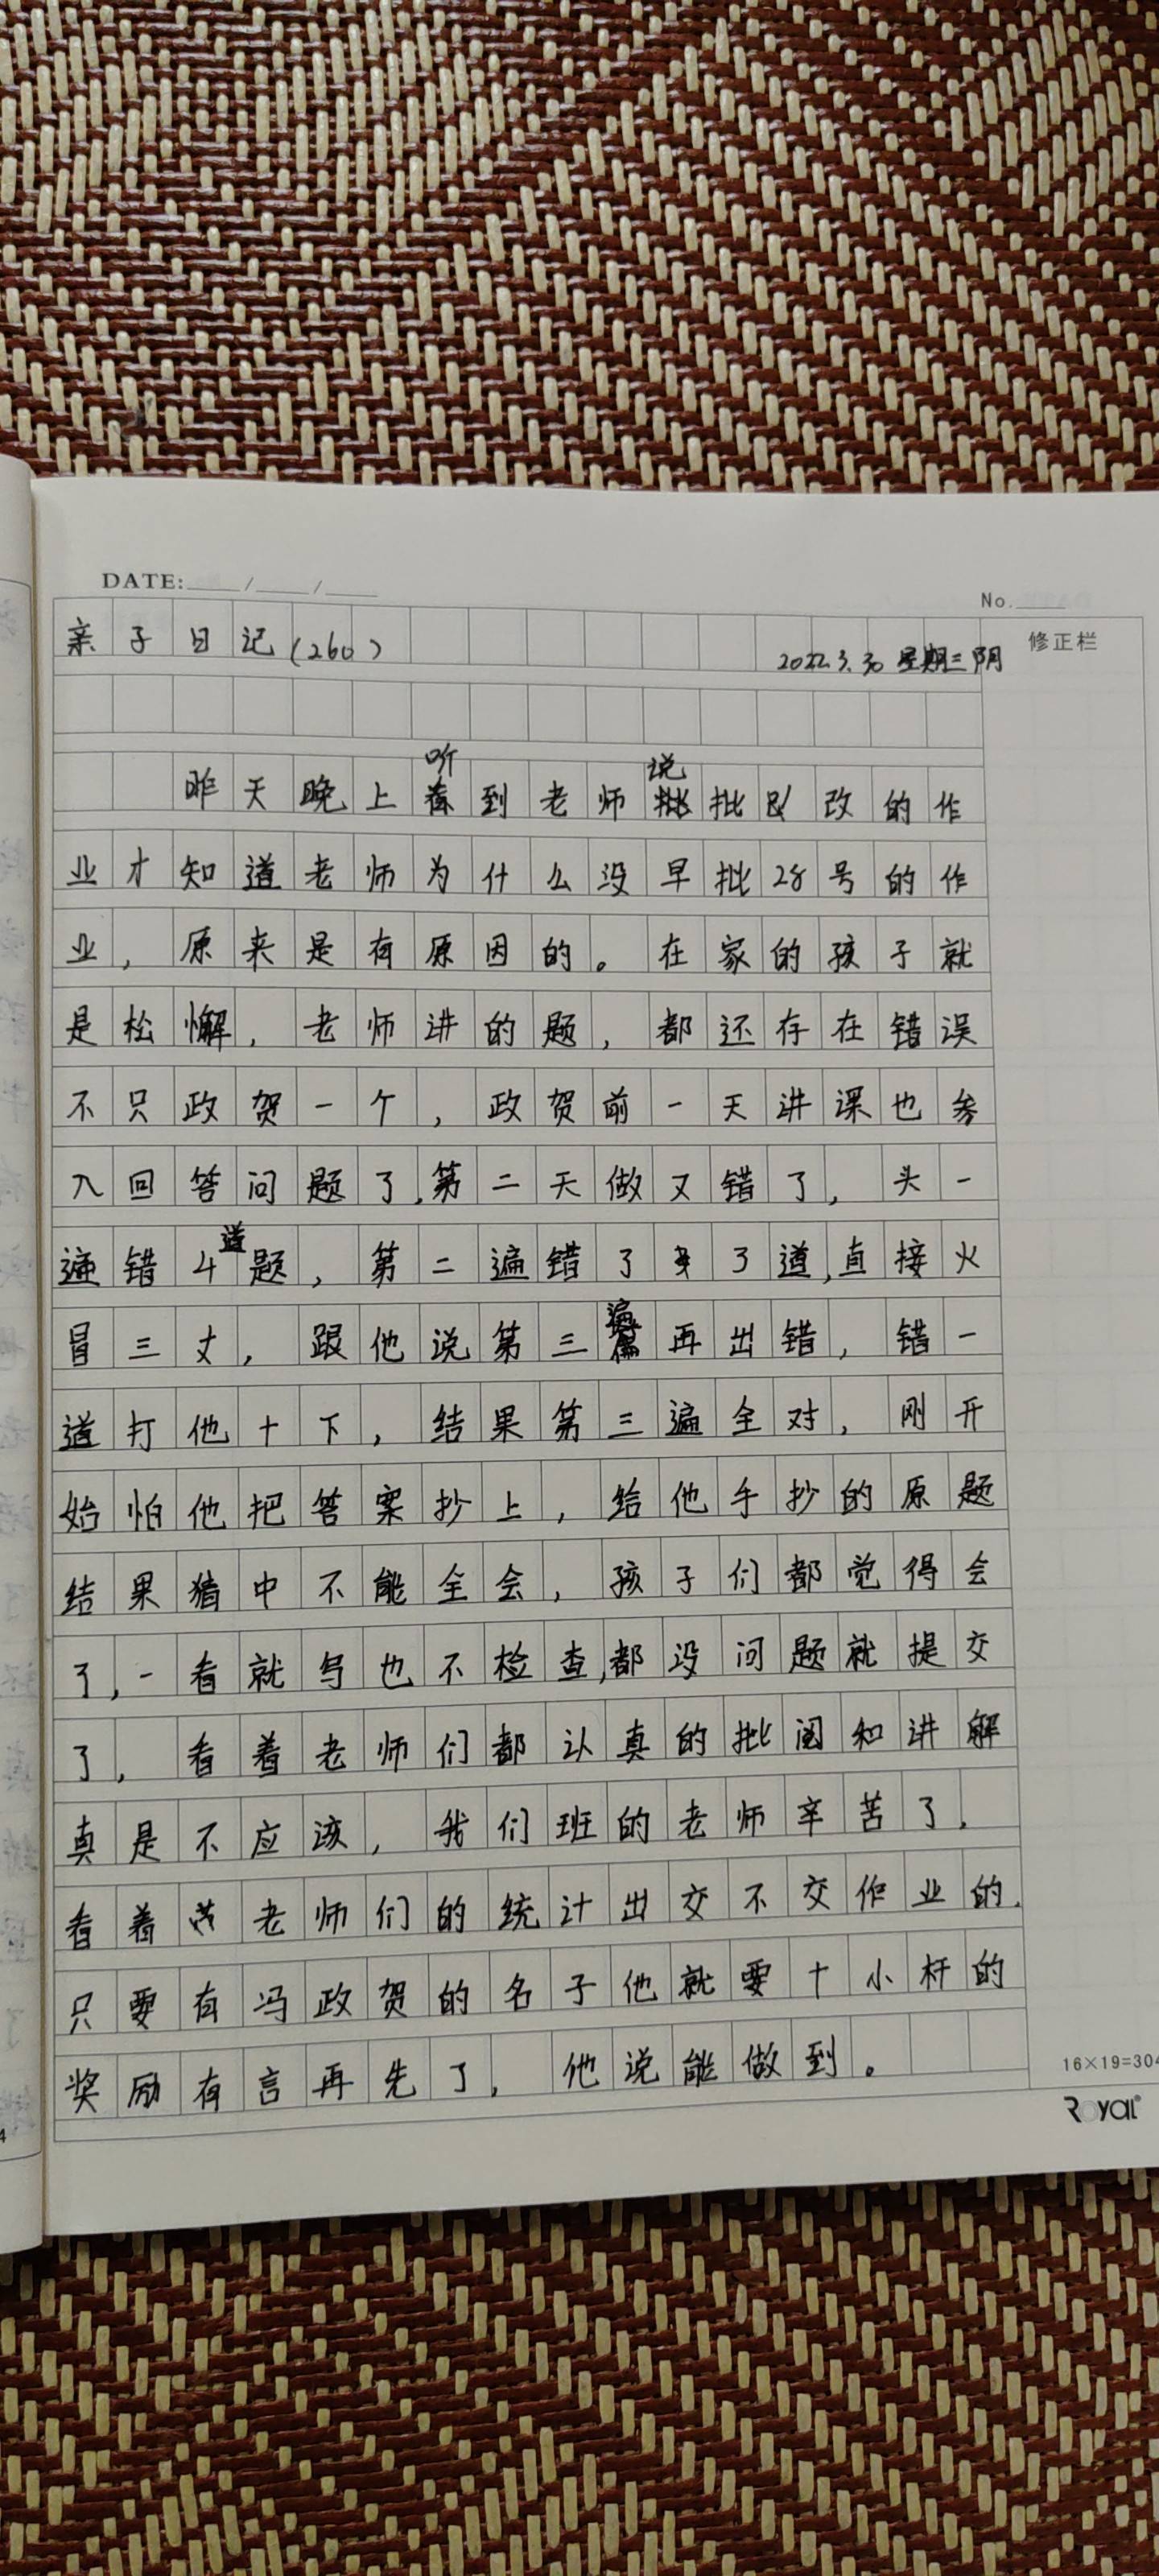 DATE:____/____/____
No.____
亲子日记(260) 2022.3.30 星期三 阴
修正栏
昨天晚上听到老师说批改的作
业才知道老师为什么没早批28号的作
业，原来是有原因的。在家的孩子就
是松懈，老师讲的题，都还存在错误
不只政贺一个，政贺前一天讲课也参
入回答问题了，第二天做又错了，头一
遍错4道题，第二遍错了3道，直接火
冒三丈，跟他说第三遍再出错，错一
道打他十下，结果第三遍全对，刚开
始怕他把答案抄上，给他手抄的原题
结果猜中不能全会，孩子们都觉得会
了，一看就写也不检查，都没问题就提交
了，看着老师们都认真的批阅和讲解
真是不应该，我们班的老师辛苦了，
看着老师们的统计出交不交作业的，
只要有冯政贺的名子他就要十小杆的
奖励有言再先了，他说能做到。
16×19=304
Royal